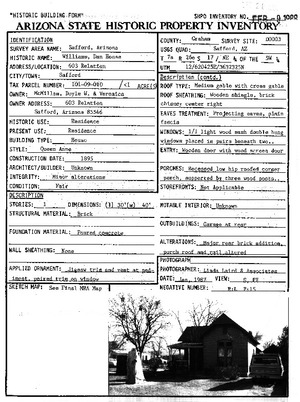 "HISTORIC BUILDING FORM"
SHPO INVENTORY NO.
ARIZONA STATE HISTORIC PROPERTY INVENTORY
IDENTIFICATION
SURVEY AREA NAME: Safford, Arizona
HISTORIC NAME: Williams, Dan House
ADDRESS/LOCATION: 603 Relation
CITY/TOWN: Safford
TAX PARCEL NUMBER: 101-09-040 / <1 ACRES
OWNER: McMillan, Doyle W. & Veronica
OWNER ADDRESS: 603 Relation
Safford, Arizona 85546
HISTORIC USE: Residence
PRESENT USE: Residence
BUILDING TYPE: House
STYLE: Queen Anne
CONSTRUCTION DATE: 1895
ARCHITECT/BUILDER: Unknown
INTEGRITY: Minor alterations
CONDITION: Fair
DESCRIPTION
STORIES: 1 DIMENSIONS: (l) 30'(w) 40'
STRUCTURAL MATERIAL: Brick
FOUNDATION MATERIAL: Poured concrete
WALL SHEATHING: None
APPLIED ORNAMENT: Jigsaw trim and vent at ped-
iment, paired trim on window
SKETCH MAP: See Final MRA Map
COUNTY: Graham SURVEY SITE: 00003
USGS QUAD: Safford, AZ
T 7s R 26e S 17 / NE ¼ OF THE SE ¼
UTM
Description (contd.)
ROOF TYPE: Medium gable with cross gable
ROOF SHEATHING: Wooden shingle, brick
chimney center right
EAVES TREATMENT: Projecting eaves, plain
fascia
WINDOWS: 1/1 light wood sash double hung
windows placed in pairs beneath two..
ENTRY: Wooden door with wood screen door
PORCHES: Recessed low hip roofed corner
porch, supported by three wood posts..
STOREFRONTS: Not Applicable
NOTABLE INTERIOR: Unknown
OUTBUILDINGS: Garage at rear
ALTERATIONS: Major rear brick addition,
porch roof and rail altered
PHOTOGRAPH
PHOTOGRAPHER: Linda Laird & Associates
DATE: Jan, 1987 VIEW:
NEGATIVE NUMBER: